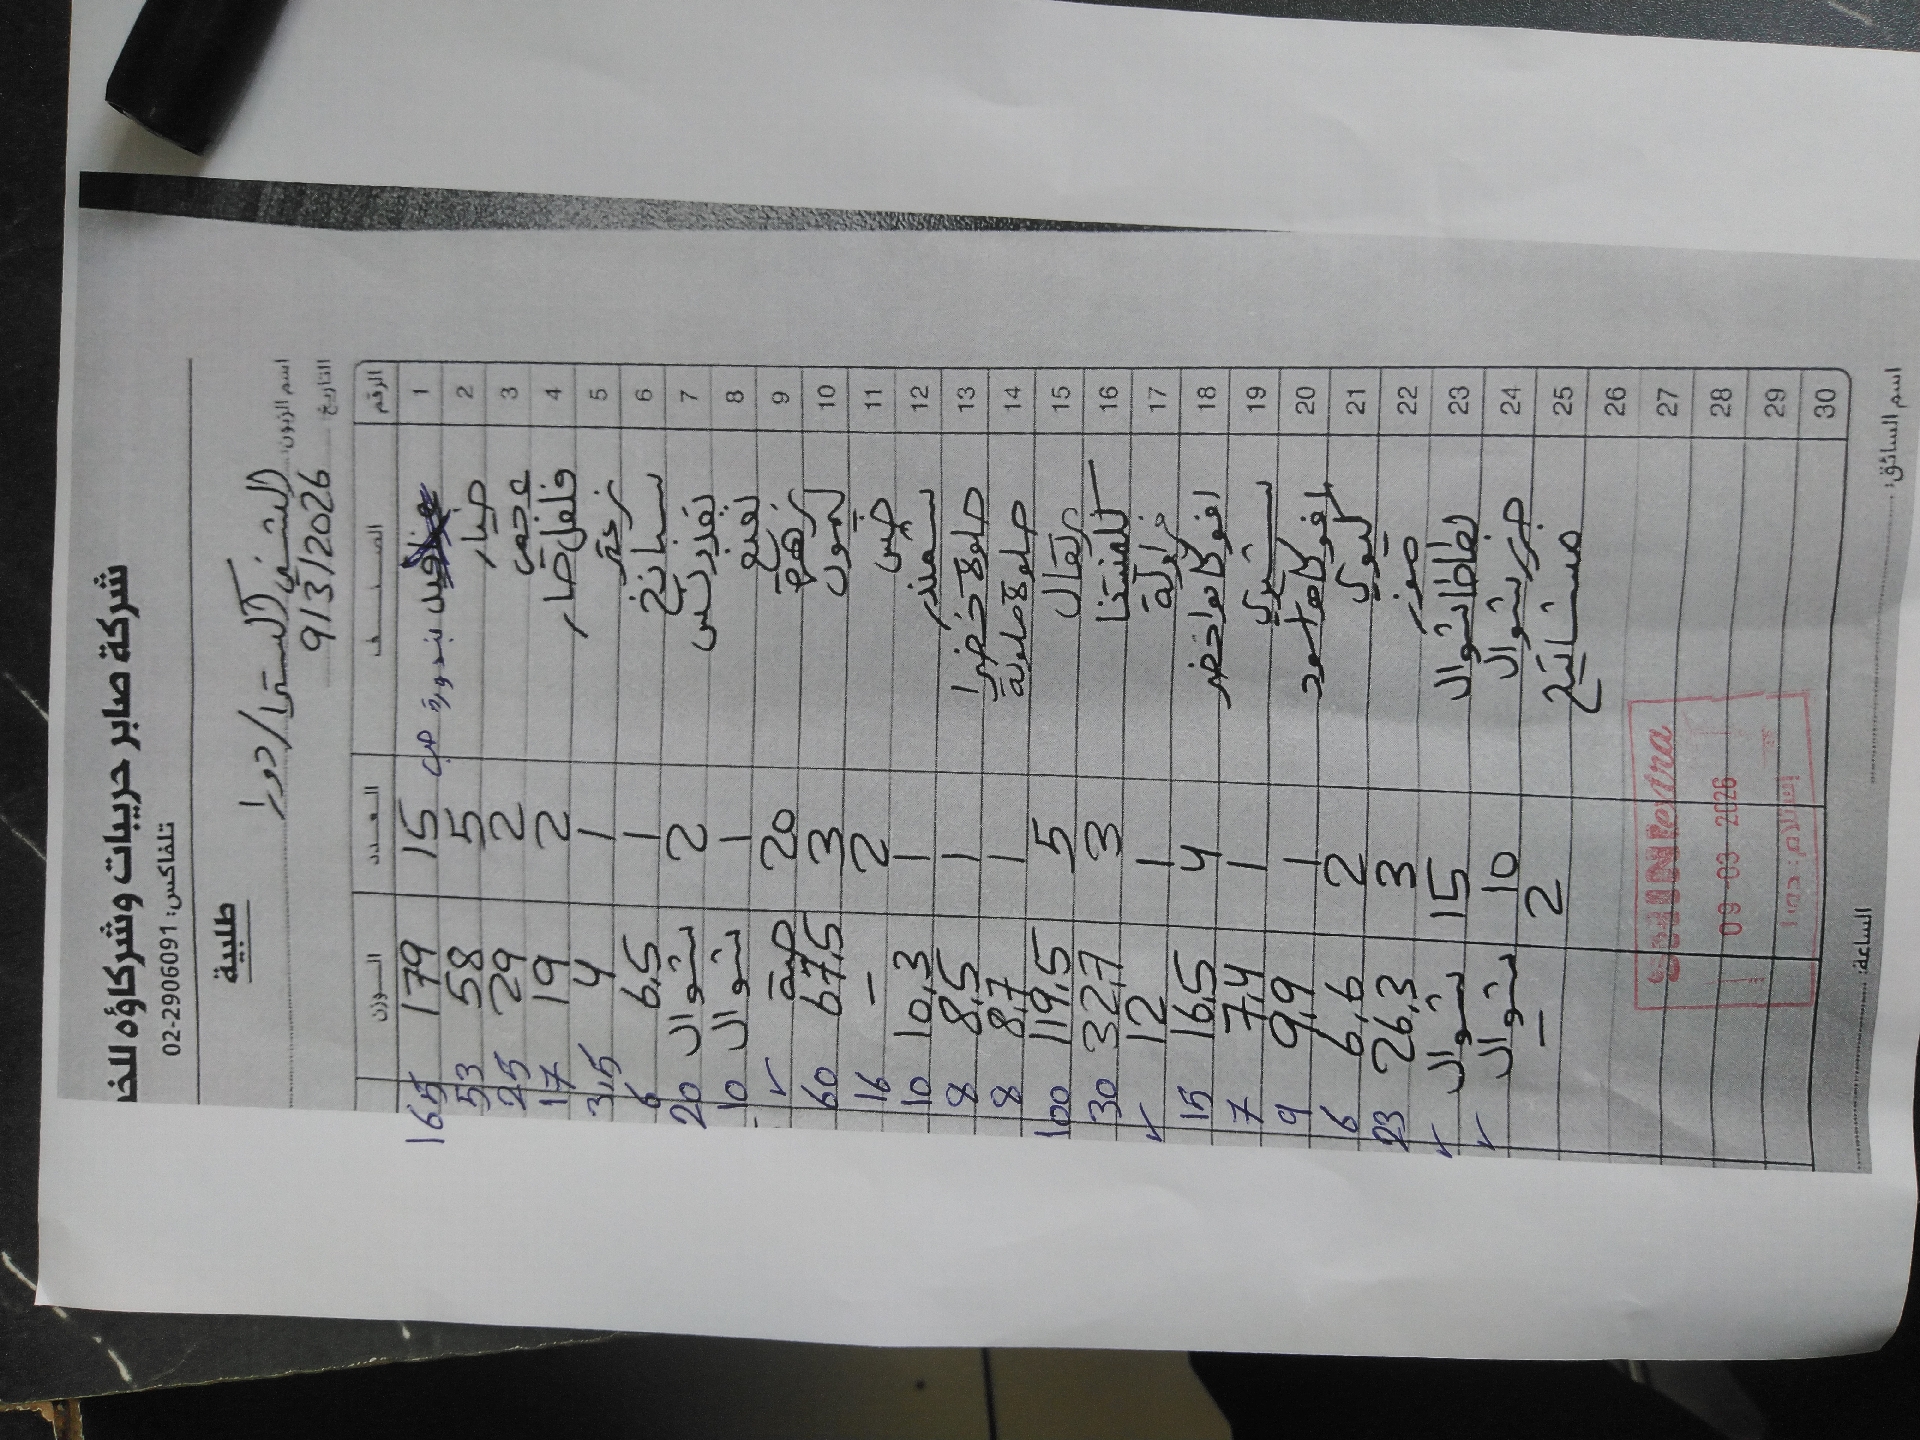 شركة صابر حريبات وشركاؤه للخ
تلفاكس: 02-2906091
طلبية
اسم الزبون: الشني اكسترا / دورا
التاريخ 9/3/2026
الرقم الصنف العدد الوزن
1 بندورة 15 179 165
2 خيار 5 58 53
3 2 29 25
4 فلفل حار 2 19 17
5 زعتر 1 4 3,5
6 سبانخ 1 6,5 6
7 بقدونس 2 شوال 20
8 1 شوال 10
9 20 حبة ✓
10 ليمون 3 67,5 60
11 خس 2 - 16
12 شمندر 1 10,3 10
13 حلوة خضرا 1 8,5 8
14 حلوة ملونة 1 8,7 8
15 برتقال 5 119,5 100
16 كلمنتينا 3 32,7 30
17 فراولة 1 12 ✓
18 افوكادو اخضر 4 16,5 15
19 شيري 1 7,4 7
20 افوكادو اسود 1 9,9 9
21 كيوي 2 6,6 6
22 موز 3 26,3 23
23 بطاطا شوال 15 شوال ✓
24 جزر شوال 10 شوال ✓
25 2 -
26
27
28
29
30
extra
09 -03- 2026
إستلام: دورا
اسم السائق:
الساعة: